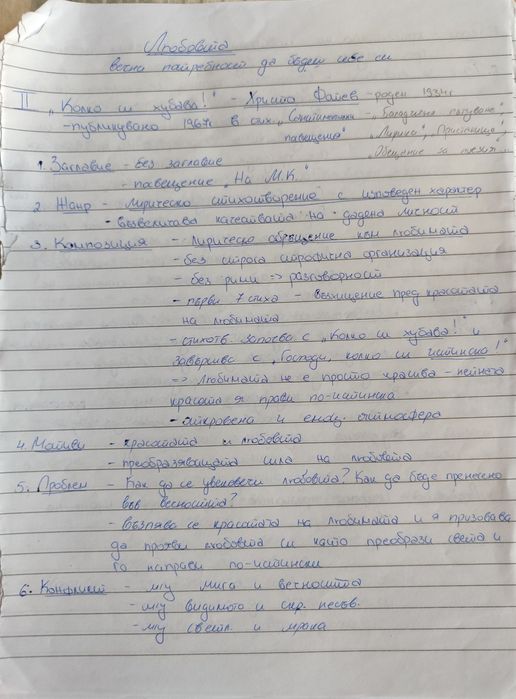 Любовта
вечна потребност да бъдеш себе си
II „Колко си хубава!" - Христо Фотев - роден 1934г
- публикувано 1967г в стих. „Сантиментални „Баладично пътуване"
посвещения" „Лирика", Пристанище",
„Обещание за поезия"...
1. Заглавие - без заглавие
- посвещение „На М.К."
2 Жанр - Лирическо стихотворение с изповеден характер
- възвеличава качествата на дадена личност
3. Композиция - лирическо обръщение към любимата
- без строга строфична организация
- без рими => разговорност
- първи 7 стиха - възхищение пред красотата
на любимата
- стихотв. започва с „Колко си хубава!" и
завършва с „Господи, колко си истинска!"
=> любимата не е просто красива - нейната
красота я прави по-истинска
- откровена и емоц. атмосфера
4. Мотиви - красотата и любовта
- преобразяващата сила на любовта
5. Проблем - Как да се увековечи любовта? Как да бъде пренесена
във вечността?
- възпява се красотата на любимата и я призовава
да прояви любовта си като преобрази света и
го направи по-истински
6. Конфликт - м/у мига и вечността
- м/у видимото и скр.
- м/у светл. и мрака